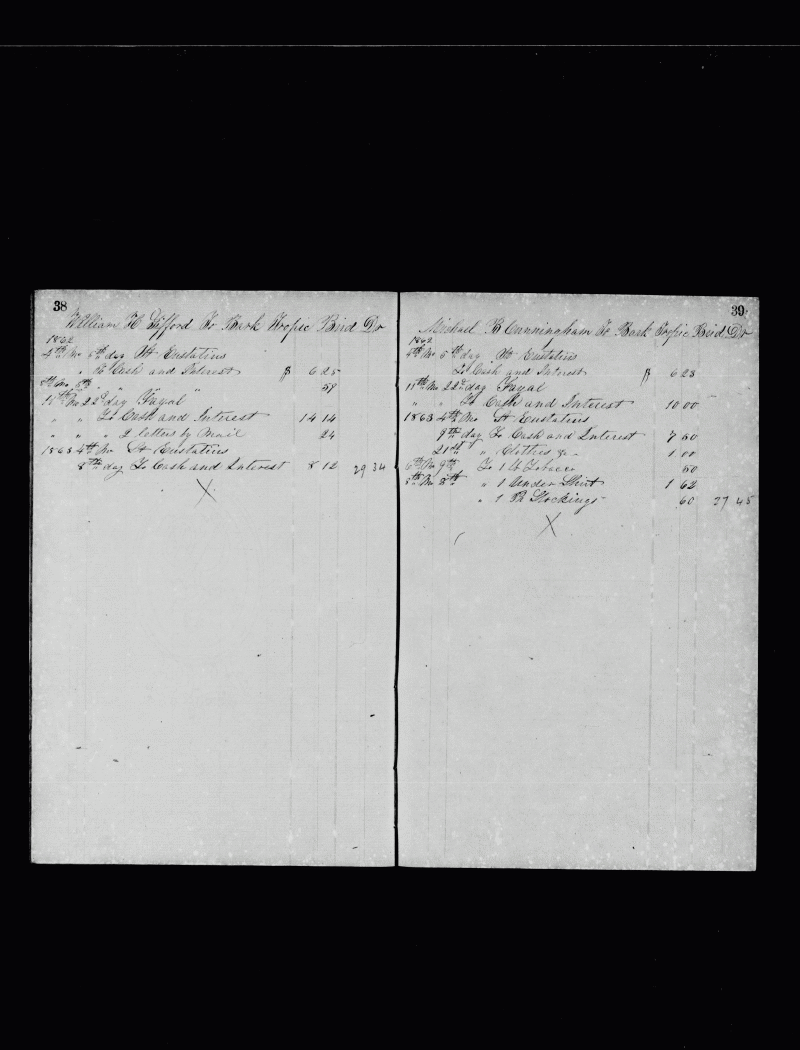 38
William H Gifford To Bark Tropic Bird Dr
1862
4th Mo 5th day St Eustatius
" To Cash and Interest $ 6 25
8th Mo 8th " " " 59
11th Mo 22d day Fayal
" " To Cash and Interest 14 14
" " " 2 letters by Mail 24
1863 4th Mo St Eustatius
8th day To Cash and Interest 8 12 29 34
X
39
Michael B Cunningham To Bark Tropic Bird Dr
1862
4th Mo 5th day St Eustatius
To Cash and Interest $ 6 23
11th Mo 22d day Fayal
" " To Cash and Interest 10 00
1863 4th Mo St Eustatius
8th day To Cash and Interest 7 50
21st " " Clothes &c 1 00
6th Mo 9th To 1 lb Tobacco 50
8th Mo 8th " 1 Under Shirt 1 62
" 1 Pr Stockings 60 27 45
X